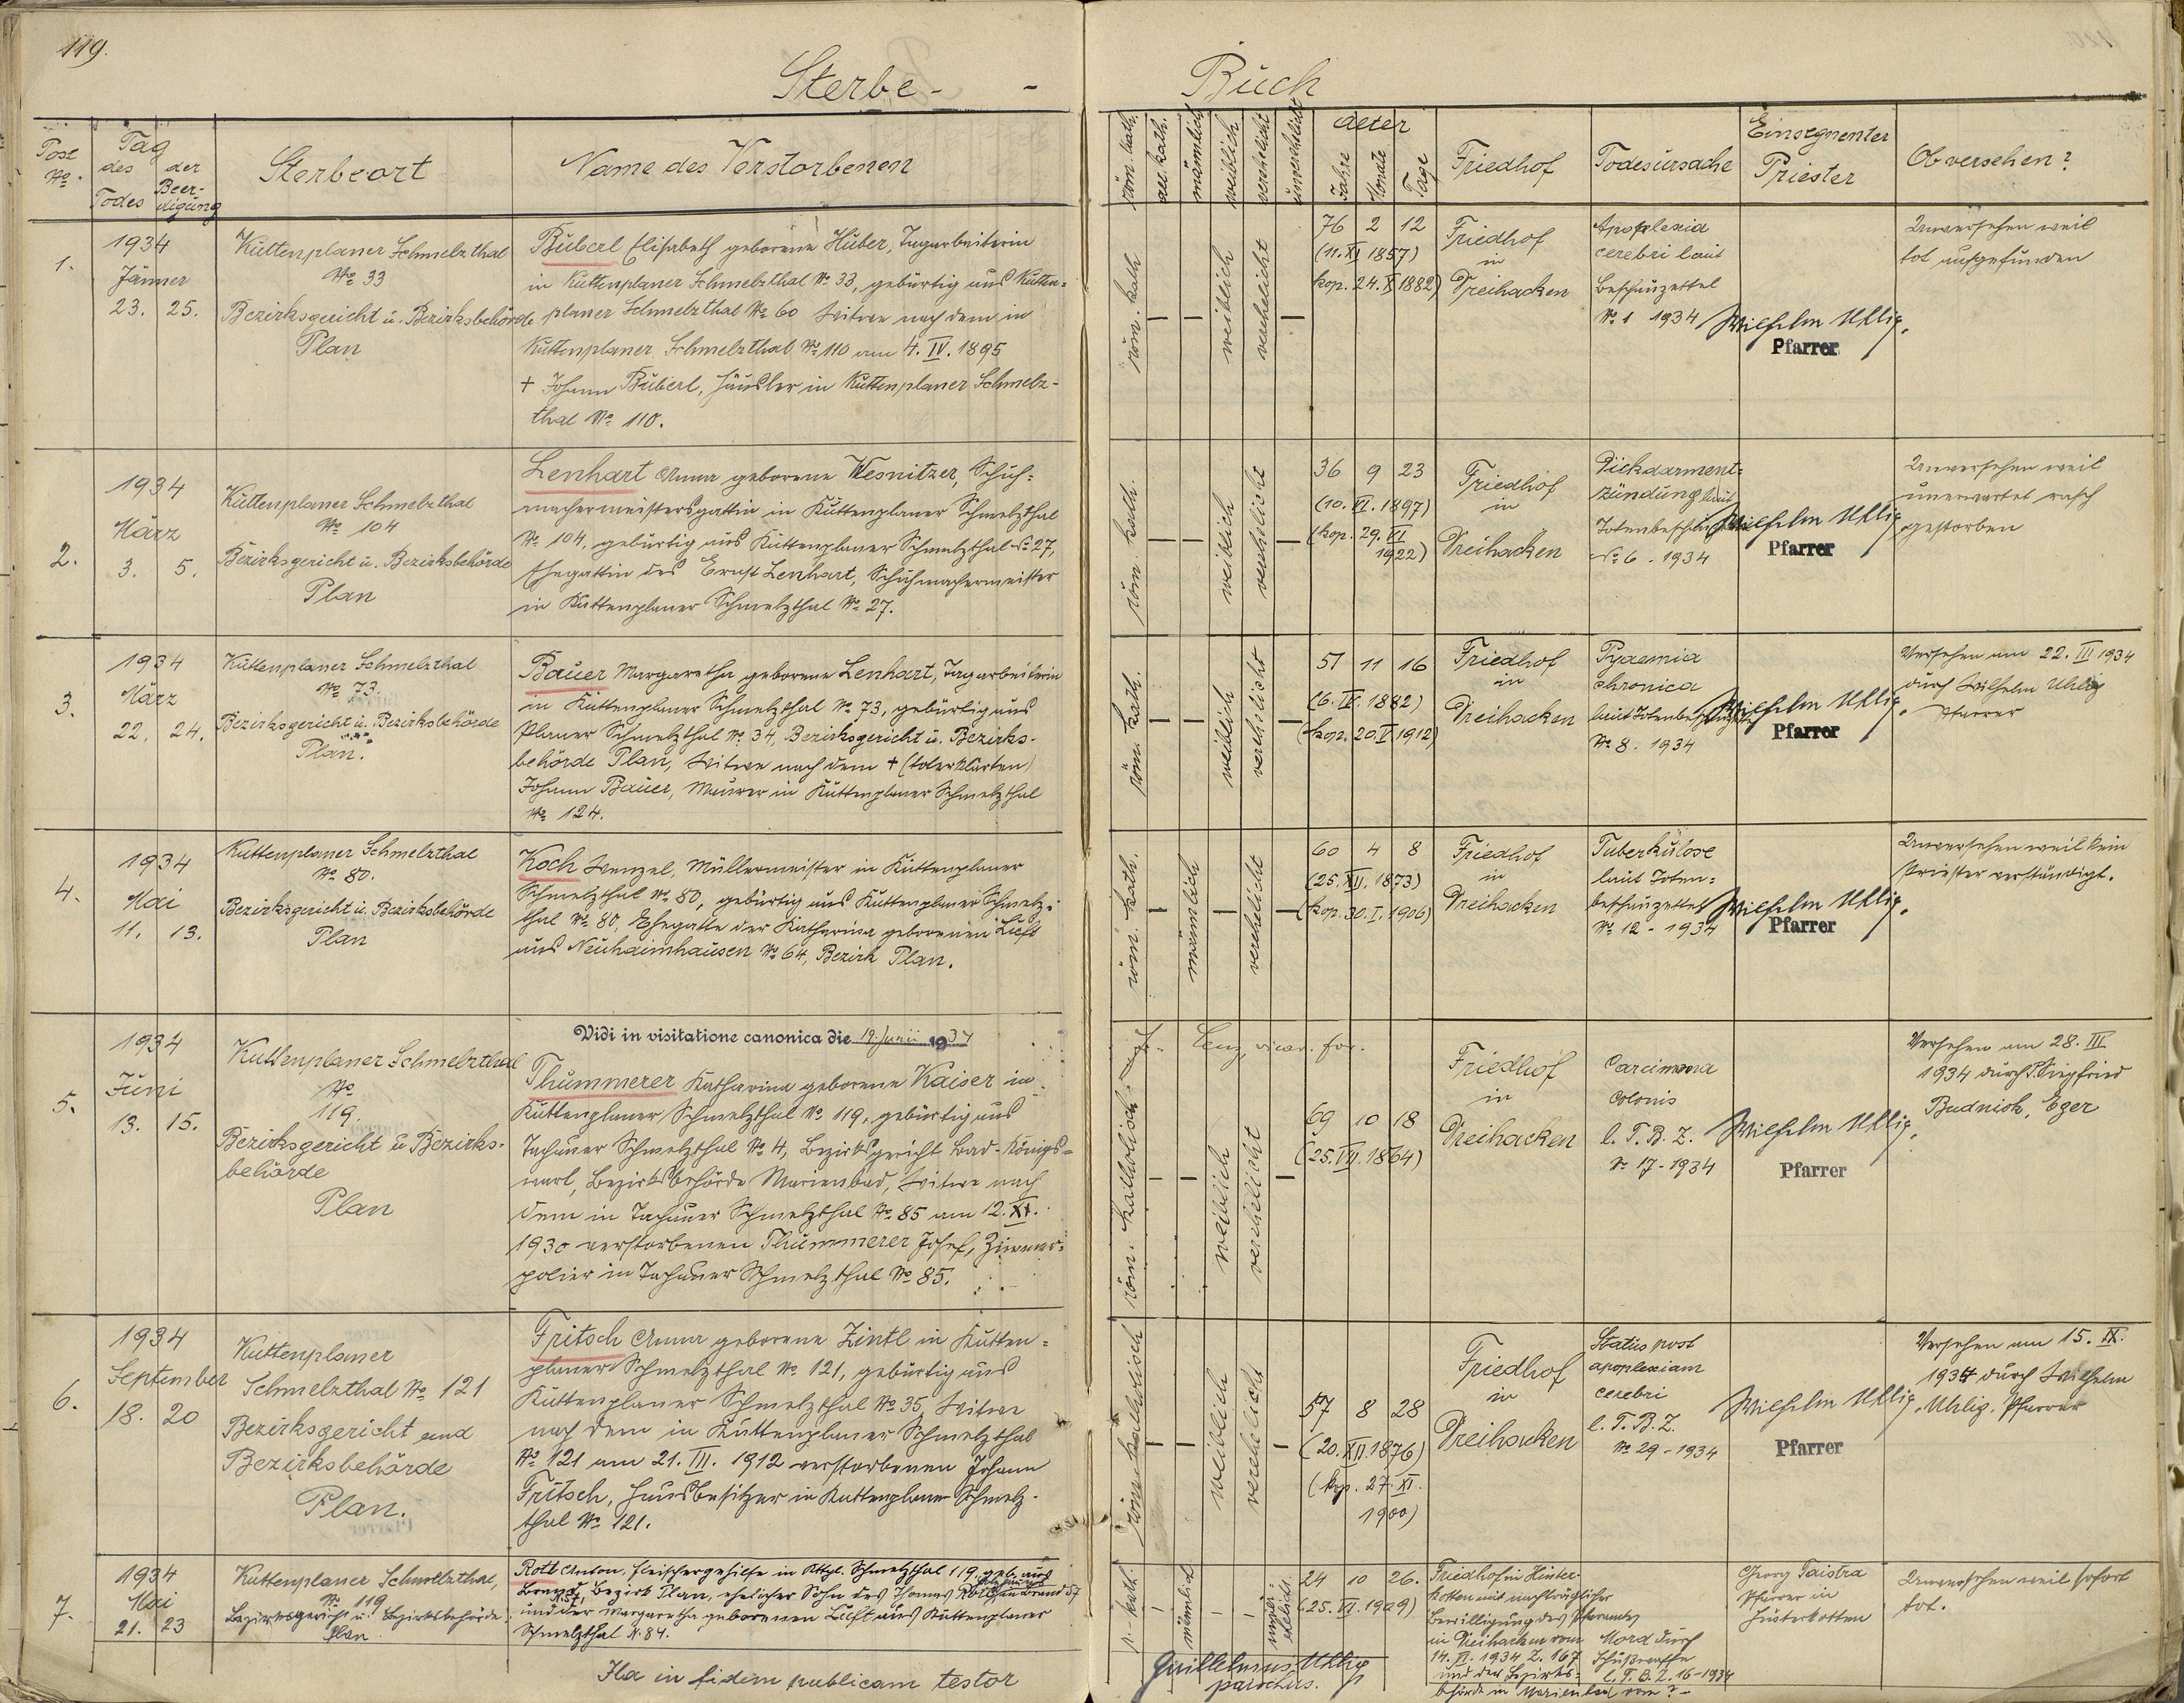 119.
Sterbe-
Buch
Post
No.
Tag
des
Todes
der
Beer-
digung
Sterbeort
Name des Verstorbenen
röm. kath.
männlich
weiblich
verehelicht
unverehelicht
Alter
Jahre
Monate
Tage
Friedhof
Todesursache
Einsegnenter
Priester
Ob versehen?
1.
1934
Jänner
23. 25.
Kuttenplaner Schmelzthal
No 33
Bezirksgericht u. Bezirksbehörde
Plan
Buberl Elisabeth geborene Huber, Tagarbeiterin
in Kuttenplaner Schmelzthal No 33, gebürtig aus Kutten=
planer Schmelzthal No 60 Witwe nach dem in
Kuttenplaner Schmelzthal No 110 am 4. IV. 1895
+ Johann Buberl, Häusler in Kuttenplaner Schmelz-
thal No 110.
röm. kath
—
—
weiblich
verehelicht
—
76 2 12
(11. XI 1857)
kop. 24. X 1882)
Friedhof
in
Dreihacken
Apoplexia
cerebri laut
Beschauzettel
No 1 1934
Wilhelm Uhlig.
Pfarrer
Unversehen weil
tot aufgefunden
2.
1934
März
3. 5.
Kuttenplaner Schmelzthal
No 104
Bezirksgericht u. Bezirksbehörde
Plan
Lenhart Anna geborene Wesnitzer, Schuh=
machermeistersgattin in Kuttenplaner Schmelzthal
No 104, gebürtig aus Kuttenplaner Schmelzthal No 27,
Ehegattin des Ernst Lenhart, Schuhmachermeister
in Kuttenplaner Schmelzthal No 27.
röm. kath.
—
—
weiblich
verehelicht
—
36 9 23
(10. VI. 1897)
(kop. 29. VI
1922)
Friedhof
in
Dreihacken
Dickdarment=
zündung laut
No 6 - 1934
Wilhelm Uhlig
Pfarrer
Unversehen weil
unerwartet rasch
gestorben
3.
1934
März
22. 24.
Kuttenplaner Schmelzthal
No 73.
Bezirksgericht u. Bezirksbehörde
Plan.
Bauer Margaretha geborene Lenhart, Tagarbeiterin
in Kuttenplaner Schmelzthal No 73, gebürtig aus
Planer Schmelzthal No 34, Bezirksgericht u. Bezirks-
behörde Plan, Witwe nach dem + (toterklärten)
Johann Bauer, Maurer in Kuttenplaner Schmelzthal
No 124.
röm. kath.
—
—
weiblich
verehelicht
—
51 11 16
(6. IV. 1882)
(kop. 20. I 1912)
Friedhof
in
Dreihacken
Pyaemia
chronica
No 8. 1934
Wilhelm Uhlig.
Pfarrer
Versehen am 22. III 1934
durch Wilhelm Uhlig
Pfarrer
4.
1934
Mai
11. 13.
Kuttenplaner Schmelzthal
No 80.
Bezirksgericht u. Bezirksbehörde
Plan
Koch Wenzel, Müllermeister in Kuttenplaner
Schmelzthal No 80, gebürtig aus Kuttenplaner Schmelz=
thal No 80, Ehegatte der Katharina geborenen Luft
aus Neuhaimhausen No 64, Bezirk Plan.
röm. kath.
—
männlich
—
verehelicht
—
60 4 8
(25. XII. 1873)
(kop. 30. I. 1906)
Friedhof
in
Dreihacken
Tuberkulose
laut Toten=
beschauzettel
No 12 - 1934
Wilhelm Uhlig.
Pfarrer
Unversehen weil kein
Priester verständigt.
Vidi in visitatione canonica die 19. Junii 1934
vicar. for.
5.
1934
Juni
13. 15.
Kuttenplaner Schmelzthal
No
119.
Bezirksgericht u Bezirks-
behörde
Plan
Thummerer Katharina geborene Kaiser in
Kuttenplaner Schmelzthal No 119, gebürtig aus
Tachauer Schmelzthal No 4, Bezirksgericht Bad-Königs=
wart, Bezirksbehörde Marienbad, Witwe nach
dem in Tachauer Schmelzthal No 85 am 12. XI.
1930 verstorbenen Thummerer Josef, Zimmer=
polier in Tachauer Schmelzthal No 85.
röm. katholisch
—
—
weiblich
verehelicht
—
69 10 18
(25. VII. 1864)
Friedhof
in
Dreihacken
Carcinoma
Colonis
l. T. B. Z.
No 17 - 1934
Wilhelm Uhlig.
Pfarrer
Versehen am 28. III
1934 durch P. Siegfried
Budnisk, Eger
6.
1934
September
18. 20
Kuttenplaner
Schmelzthal No 121
Bezirksgericht und
Bezirksbehörde
Plan.
Fritsch Anna geborene Zintl in Kutten=
planer Schmelzthal No 121, gebürtig aus
Kuttenplaner Schmelzthal No 35, Witwe
nach dem in Kuttenplaner Schmelzthal
No 121 am 21. III. 1912 verstorbenen Johann
Fritsch, Hausbesitzer in Kuttenplaner Schmelz-
thal No 121.
röm. katholisch
—
—
weiblich
verehelicht
—
57 8 28
(20. XII. 1876)
(kop. 27. XI.
1900)
Friedhof
in
Dreihacken
Status post
apoplexiam
cerebri
l. T. B. Z.
No 29 - 1934
Wilhelm Uhlig.
Pfarrer
Versehen am 15. IX.
1934 durch Wilhelm
Uhlig. Pfarrer
7.
1934
Mai
21. 23
Kuttenplaner Schmelzthal,
No 119
Bezirksgericht u. Bezirksbehörde
Plan
Rott Anton, Fleischergehilfe in Kttpl. Schmelzthal 119, geb. aus
Brand, Bezirk Plan, ehelicher Sohn des Thomas Rott, in Brand 57
N. 57,
und der Margaretha geborenen Luft aus Kuttenplaner
Schmelzthal N. 84.
r.-kath.
—
männlich
—
—
unver=
ehelicht.
24 10 26.
(25. VI. 1909)
Friedhof in Hinter-
kotten mit nachträglicher
Bewilligung des Pfarramtes
in Dreihacken vom
14. VI. 1934 Z. 167
und der Bezirks-
behörde in Marienbad vom ? -
Mord durch
Schußwaffe
l. T. B. Z. 16 - 1934
Georg Taistra
Pfarrer in
Hinterkotten
Unversehen weil sofort
tot.
Ita in fidem publicam testor
Guillelmus Uhlig
parochus.